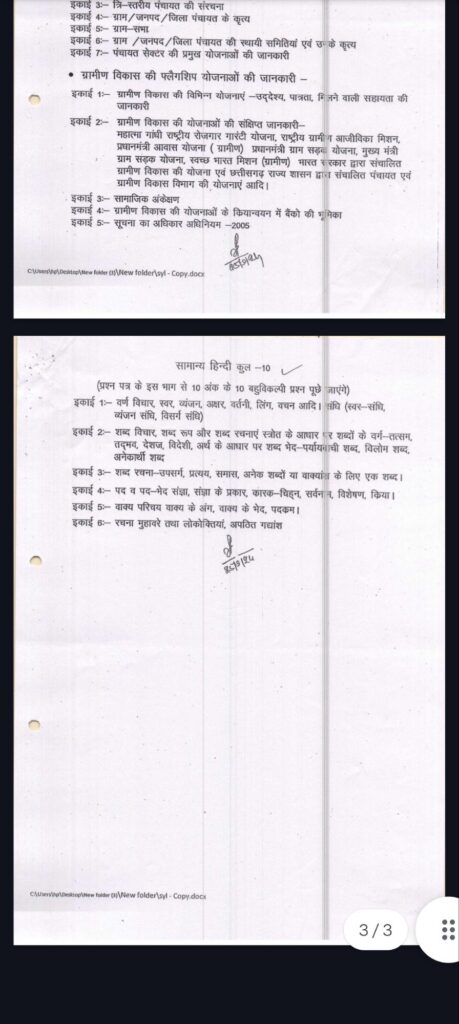 इकाई 3:– त्रि–स्तरीय पंचायत की संरचना
इकाई 4:– ग्राम/जनपद/जिला पंचायत के कृत्य
इकाई 5:– ग्राम–सभा
इकाई 6:– ग्राम /जनपद/जिला पंचायत की स्थायी समितियां एवं उनके कृत्य
इकाई 7:– पंचायत सेक्टर की प्रमुख योजनाओं की जानकारी
• ग्रामीण विकास की फ्लैगशिप योजनाओं की जानकारी –
इकाई 1:– ग्रामीण विकास की विभिन्न योजनाएं –उद्देश्य, पात्रता, मिलने वाली सहायता की
जानकारी
इकाई 2:– ग्रामीण विकास की योजनाओं की संक्षिप्त जानकारी–
महात्मा गांधी राष्ट्रीय रोजगार गारंटी योजना, राष्ट्रीय ग्रामीण आजीविका मिशन,
प्रधानमंत्री आवास योजना ( ग्रामीण) प्रधानमंत्री ग्राम सड़क योजना, मुख्य मंत्री
ग्राम सड़क योजना, स्वच्छ भारत मिशन (ग्रामीण) भारत सरकार द्वारा संचालित
ग्रामीण विकास की योजना एवं छत्तीसगढ़ राज्य शासन द्वारा संचालित पंचायत एवं
ग्रामीण विकास विभाग की योजनाएं आदि।
इकाई 3:– सामाजिक अंकेक्षण
इकाई 4:– ग्रामीण विकास की योजनाओं के कियान्वयन में बैंको की भूमिका
इकाई 5:– सूचना का अधिकार अधिनियम –2005
C:\Users\hp\Desktop\New folder (3)\New folder\syl - Copy.docx
सामान्य हिन्दी कुल –10
(प्रश्न पत्र के इस भाग से 10 अंक के 10 बहुविकल्पी प्रश्न पूछे जाएंगे)
इकाई 1:– वर्ण विचार, स्वर, व्यंजन, अक्षर, वर्तनी, लिंग, वचन आदि। संधि (स्वर–संधि,
व्यंजन संधि, विसर्ग संधि)
इकाई 2:– शब्द विचार, शब्द रूप और शब्द रचनाएं स्त्रोत के आधार पर शब्दों के वर्ग–तत्सम,
तद्भव, देशज, विदेशी, अर्थ के आधार पर शब्द भेद–पर्यायवाची शब्द, विलोम शब्द,
अनेकार्थी शब्द
इकाई 3:– शब्द रचना–उपसर्ग, प्रत्यय, समास, अनेक शब्दों या वाक्यांश के लिए एक शब्द।
इकाई 4:– पद व पद–भेद संज्ञा, संज्ञा के प्रकार, कारक–चिह्न, सर्वनाम, विशेषण, किया।
इकाई 5:– वाक्य परिचय वाक्य के अंग, वाक्य के भेद, पदकम।
इकाई 6:– रचना मुहावरे तथा लोकोक्तियां, अपठित गद्यांश
C:\Users\hp\Desktop\New folder (3)\New folder\syl - Copy.docx
3/3